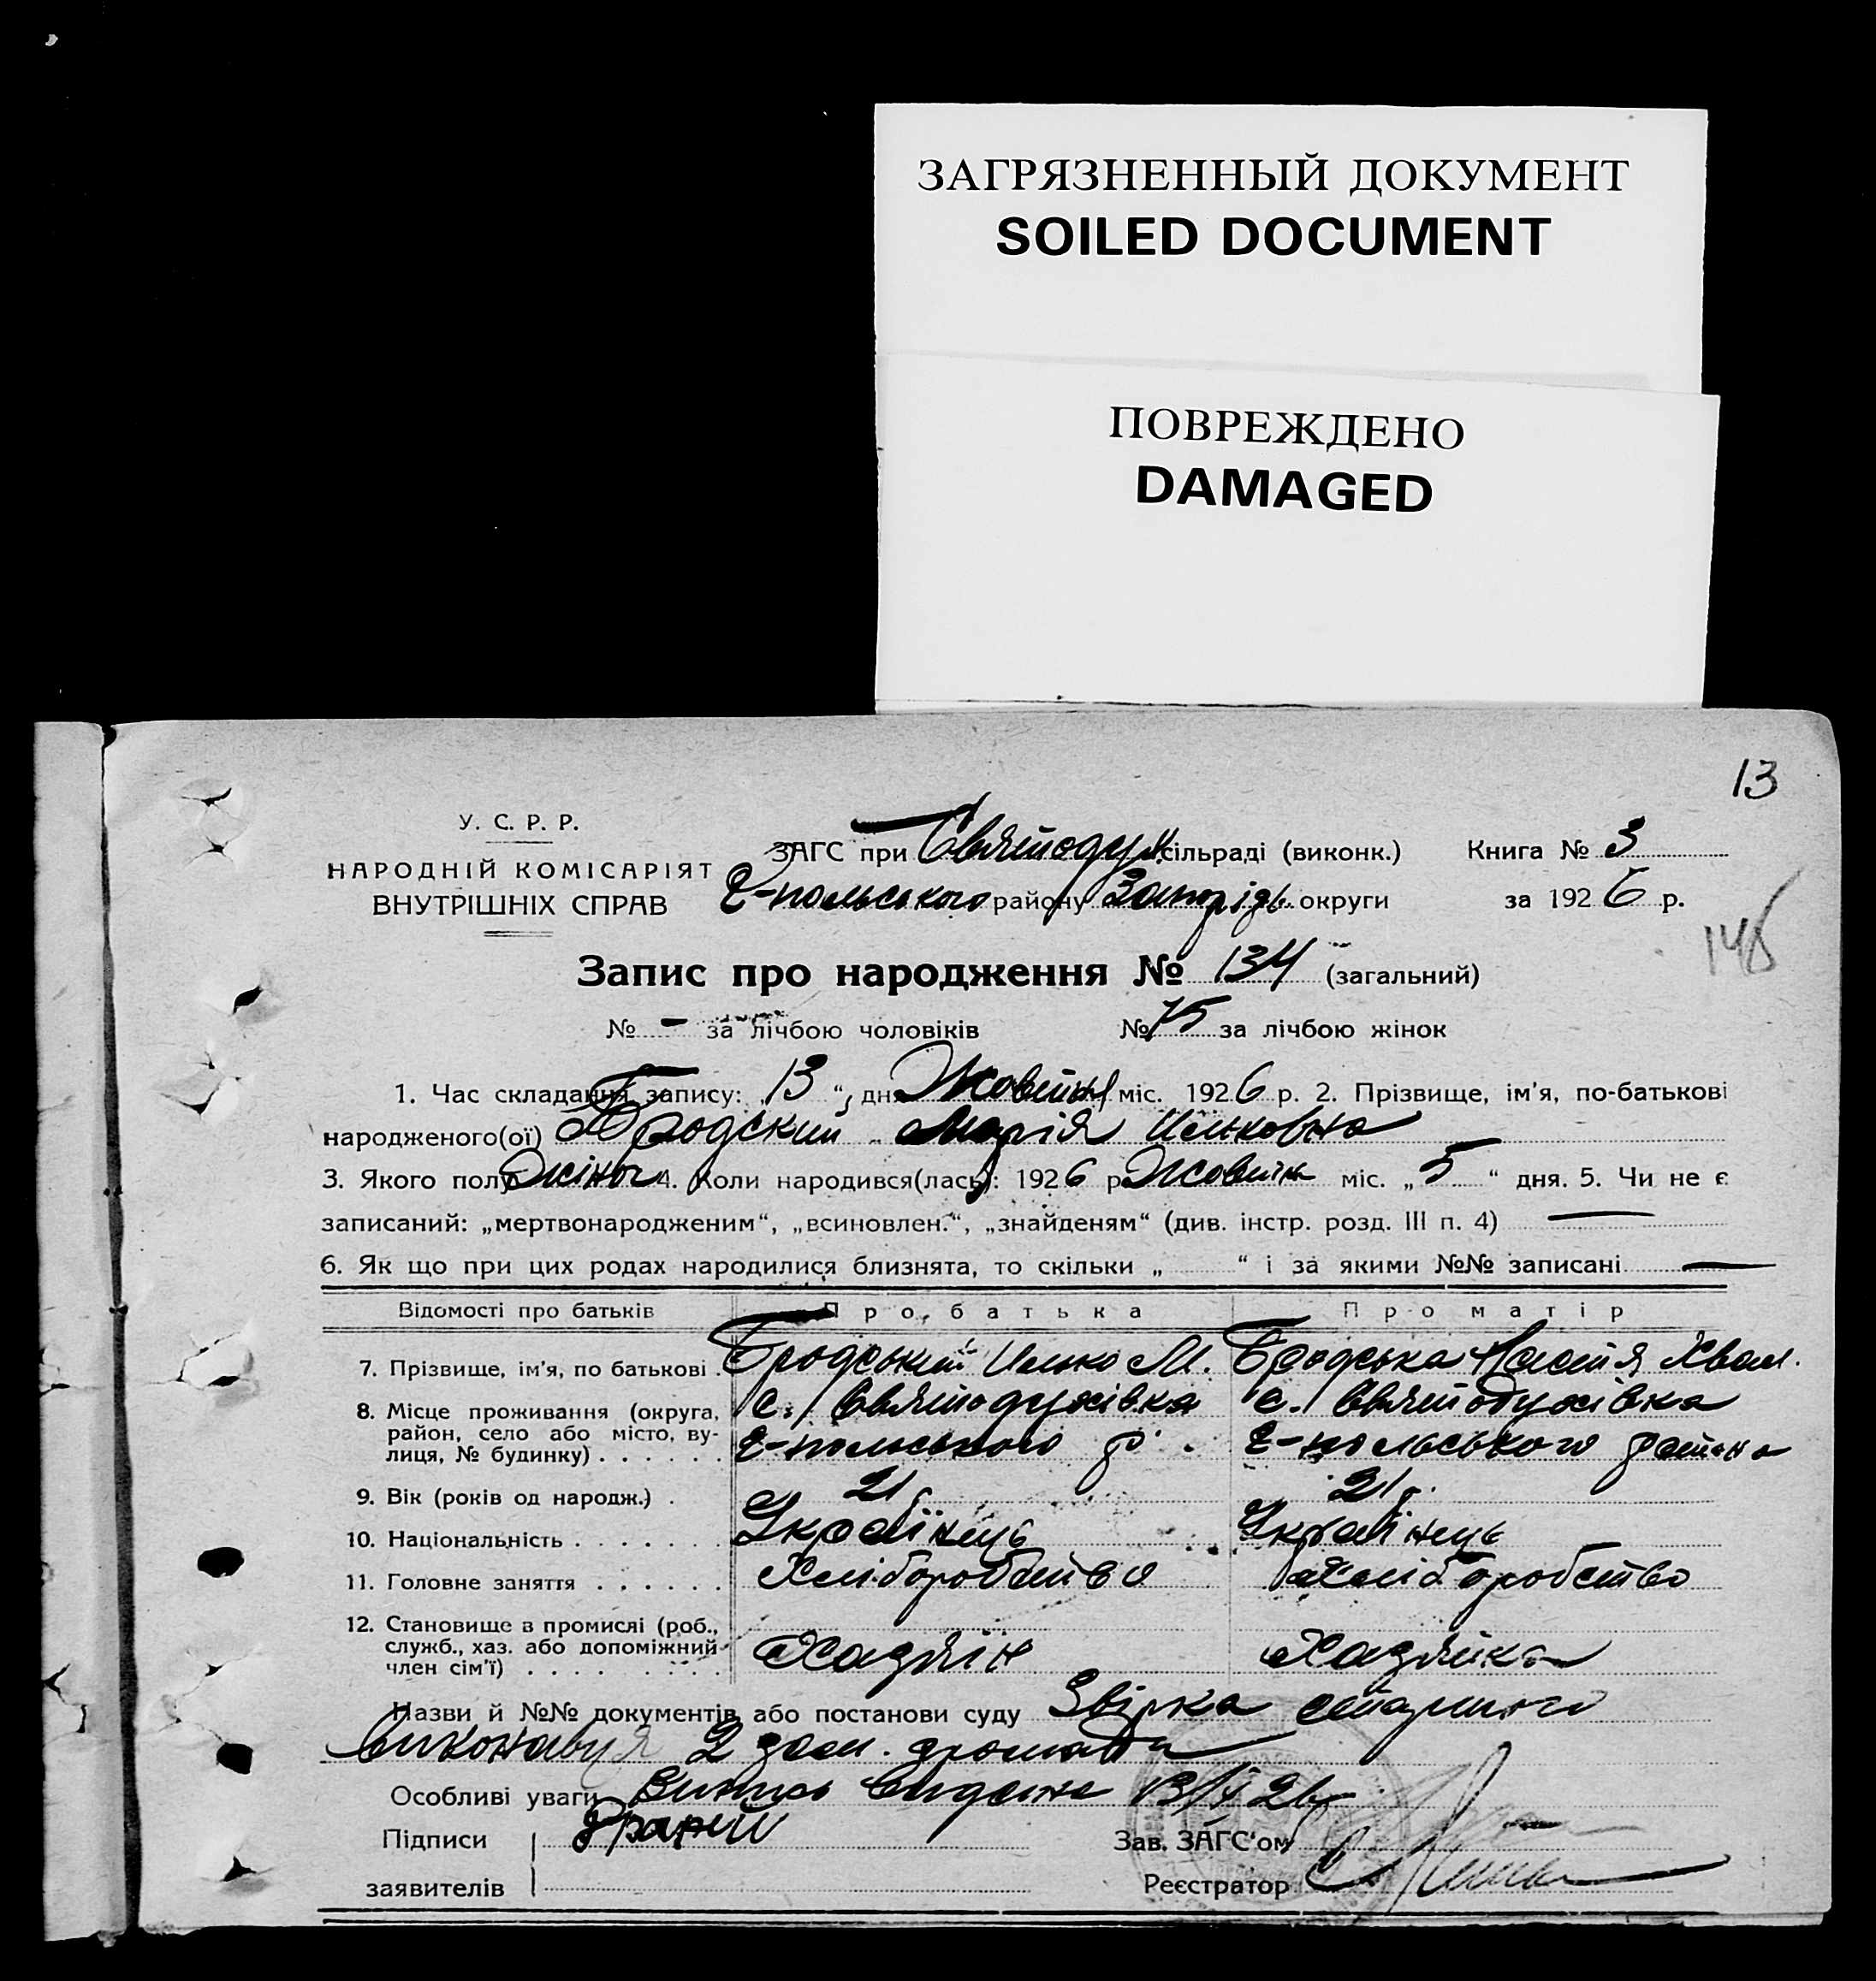 ЗАГРЯЗНЕННЫЙ ДОКУМЕНТ
SOILED DOCUMENT
ПОВРЕЖДЕНО
DAMAGED
13
У. С. Р. Р.
НАРОДНІЙ КОМІСАРІЯТ
ВНУТРІШНІХ СПРАВ
ЗАГС при Святодух. сільраді (виконк.) Книга № 3
-польського району Запорізь. округи за 1926 р.
Запис про народження № 134 (загальний)
№ - за лічбою чоловіків № 75 за лічбою жінок
1. Час складання запису: 13 “, дня Жовтня міс. 1926 р. 2. Прізвище, ім'я, по-батькові
народженого(ої) Бродский Марія Ильковна
3. Якого полу жіноч 4. Коли народився(лась): 1926 р. Жовтн міс. „ 5 “ дня. 5. Чи не є
записаний: „мертвонародженим“, „всиновлен.“, „знайденям“ (див. інстр. розд. III п. 4) —
6. Як що при цих родах народилися близнята, то скільки „ “ і за якими №№ записані —
Відомості про батьків Про батька Про матір
7. Прізвище, ім'я, по батькові . Бродський Илько М. Бродська Настя Хвал.
8. Місце проживання (округа, с. Святодухівка с. Святодухівка
район, село або місто, ву-
лиця, № будинку) . . . . . . -польського р. -польського района
9. Вік (років од народж.) . 21 г. 21 г.
10. Національність . . . . . . . Українець Українець
11. Головне заняття . . . . . . Хліборобство Хліборобство
12. Становище в промислі (роб.,
служб., хаз. або допоміжний Хазяїн Хазяйка
член сім'ї) . . . . . . . . .
Назви й №№ документів або постанови суду Звірка старшого
виконавця 2 зем. громади
Особливі уваги видана 13/X 26
Підписи
Зав. ЗАГС'ом
заявителів
Реєстратор